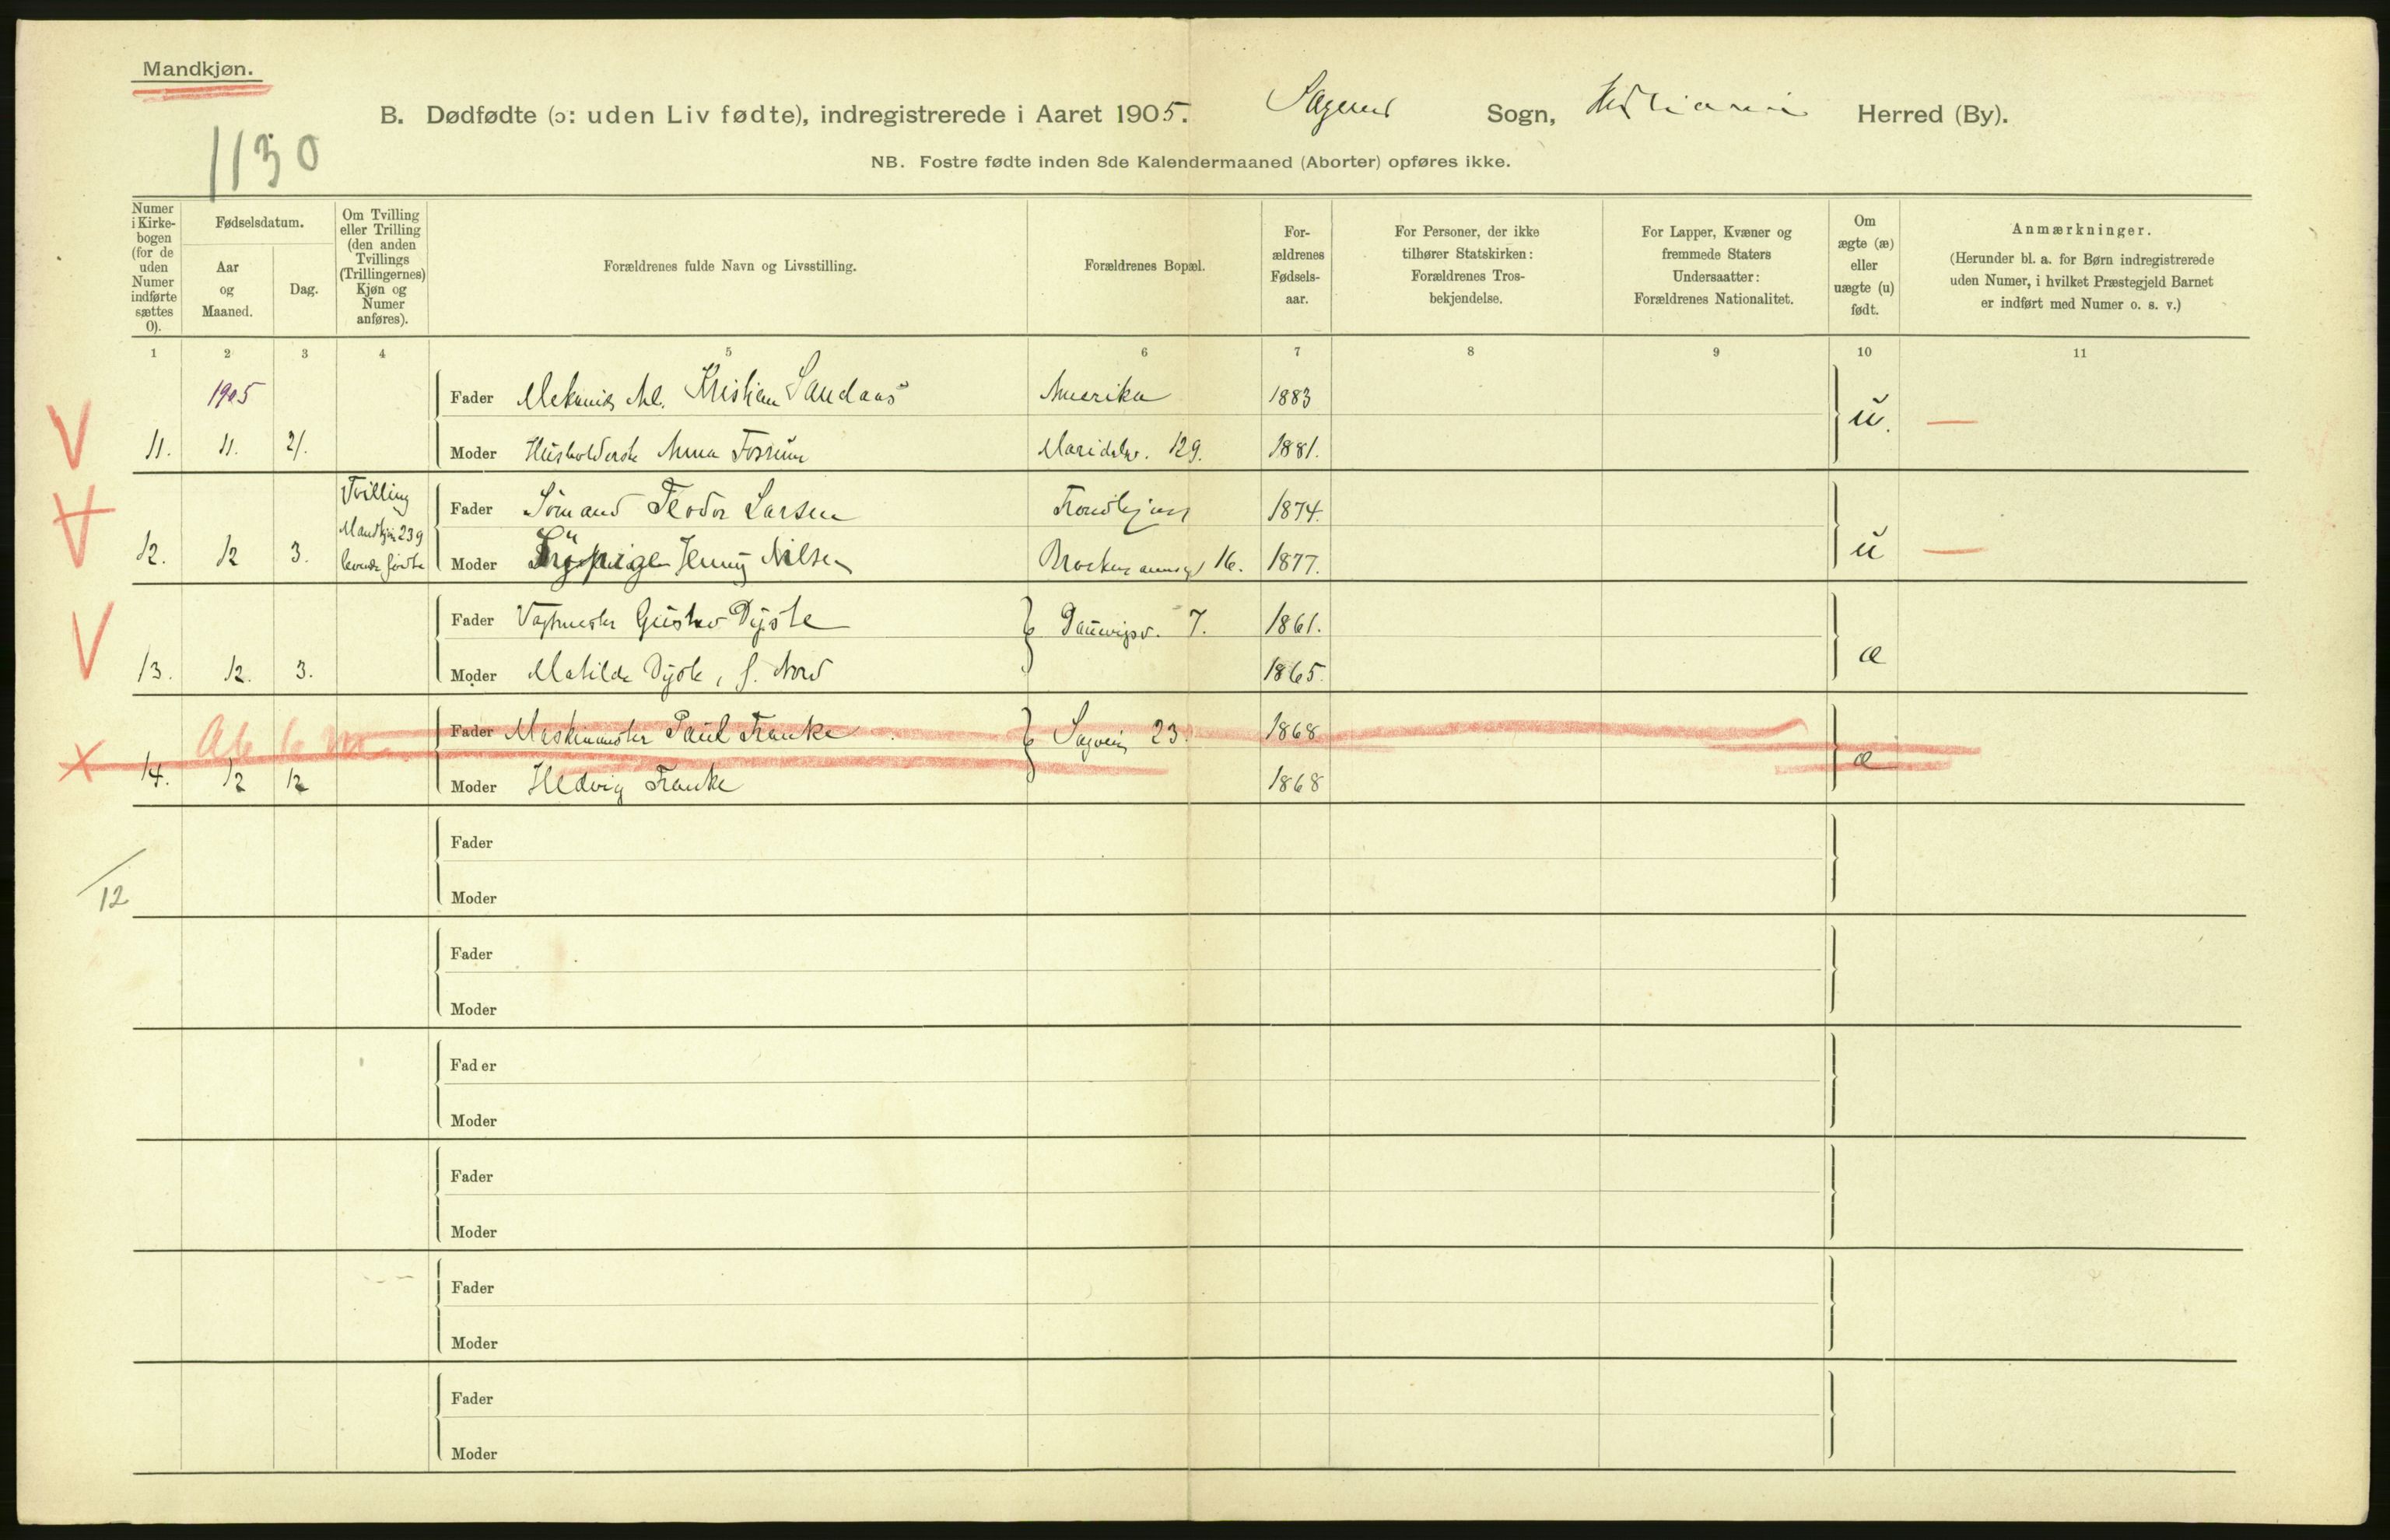 Mandkjøn.
B. Dødfødte (ɔ: uden Liv fødte), indregistrerede i Aaret 1905. Sagenes Sogn, Kristiania Herred (By).
1130
NB. Fostre fødte inden 8de Kalendermaaned (Aborter) opføres ikke.
Numer i Kirke- bogen (for de uden Numer indførte sættes 0).
Fødselsdatum.
Aar og Maaned.
Dag.
Om Tvilling eller Trilling (den anden Tvillings (Trillingernes) Kjøn og Numer anføres).
Forældrenes fulde Navn og Livsstilling.
Forældrenes Bopæl.
For- ældrenes Fødsels- aar.
For Personer, der ikke tilhører Statskirken: Forældrenes Tros- bekjendelse.
For Lapper, Kvæner og fremmede Staters Undersaatter: Forældrenes Nationalitet.
Om ægte (æ) eller uægte (u) født.
Anmærkninger.
(Herunder bl. a. for Børn indregistrerede uden Numer, i hvilket Præstegjeld Barnet er indført med Numer o. s. v.)
1 2 3 4 5 6 7 8 9 10 11
1905 Fader Kristian Sandaas Amerika 1883
11. 11. 21. Moder Husholderske Anna Fossum Maridalsv. 129. 1881. u. —
Tvilling Fader Sömand Teodor Larsen Trondhjem 1874.
Mandkjön 239
12. 12 3. levende födte Moder Jenny Nilsen 16. 1877. u —
Fader Vagtmester Gustav Dyste 7. 1861.
13. 12. 3. Moder Matilde Dyste, f. Nord 1865. æ
Fader Maskinmester Paul Franke Sagveien 23. 1868
14. 12 12 Moder Hedvig Franke 1868 æ
Fader
12
Moder
Fader
Moder
Fader
Moder
Fader
Moder
Fader
Moder
Fader
Moder